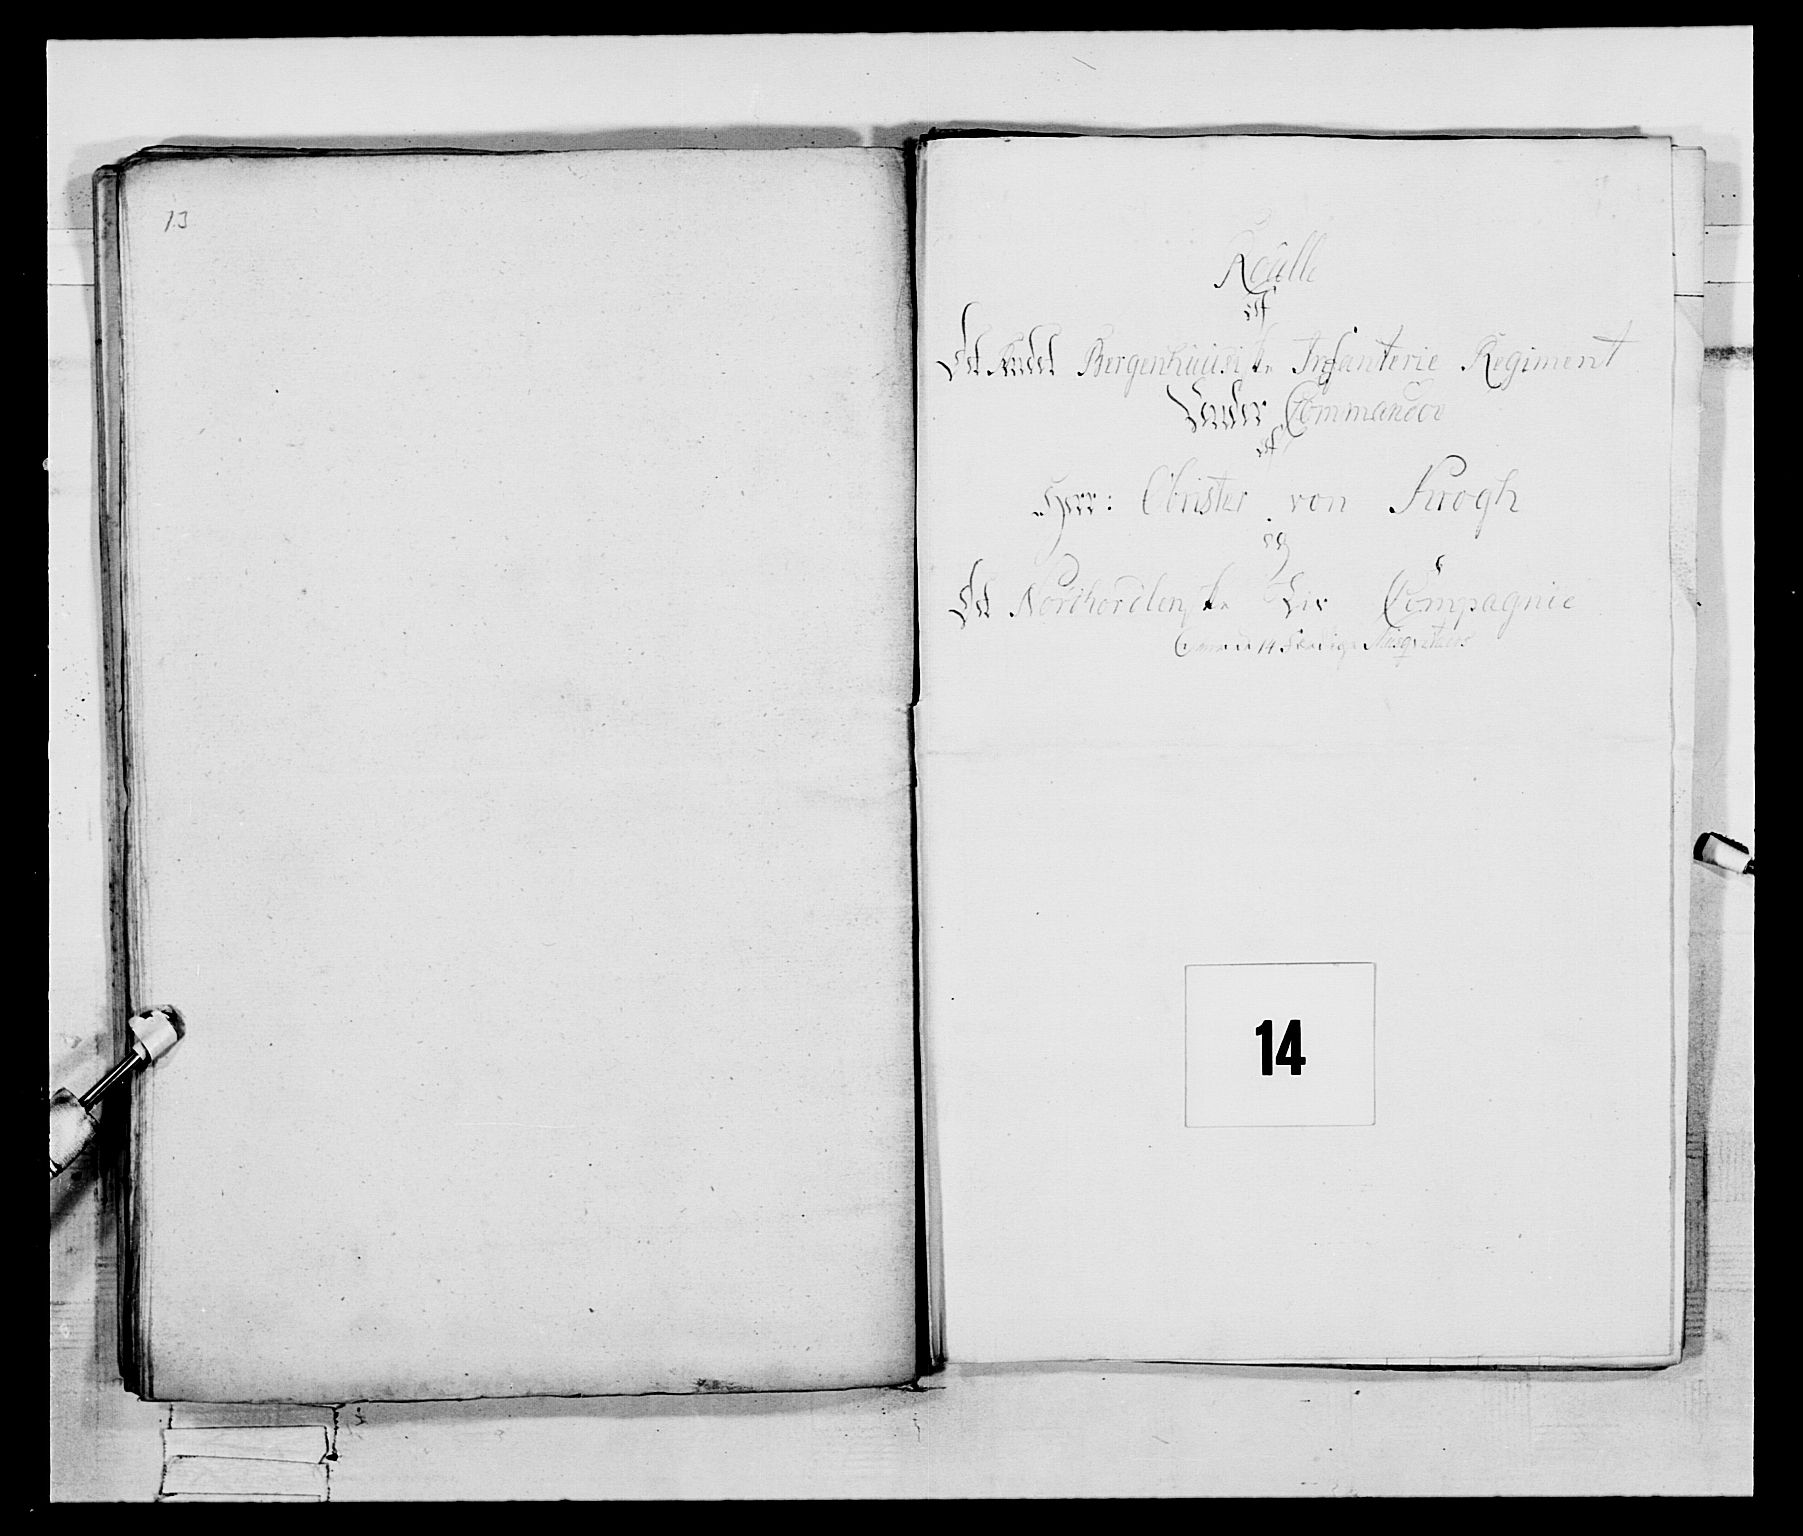 13
Roulle
af
Det Andet Bergenhuusiske Infanterie Regiment
Under Commandoe
af
Herr: Obrister von Krogh
og
Det Nordhordlenske Liv Compagnie
14 Musqveterer
14